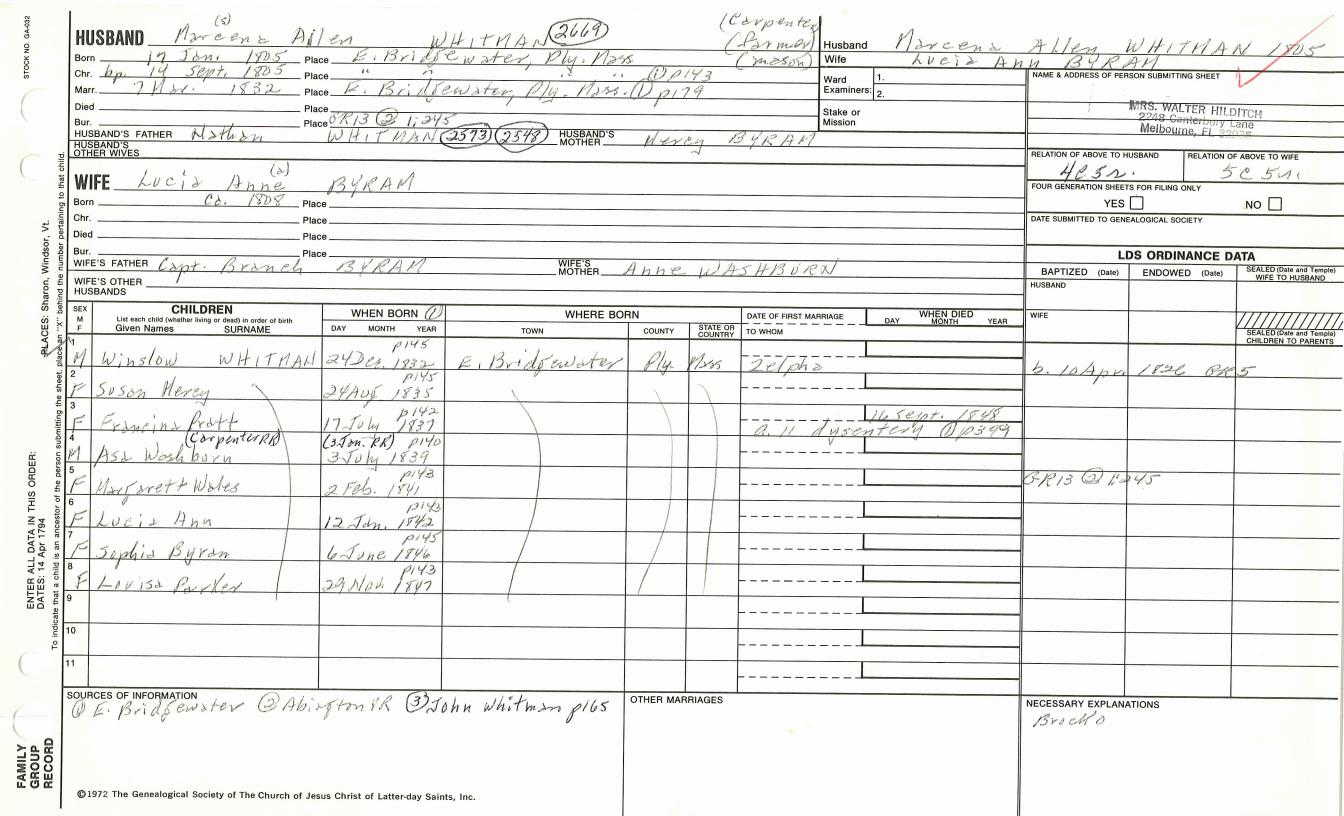 STOCK NO. GA-032
(s)
HUSBAND Marcena Allen WHITMAN 2669 (Carpenter)
(farmer)
(mason)
Born 17 Jan. 1805 Place E. Bridgewater, Ply. Mass
Chr. bp. 14 Sept. 1805 Place " " " " ① p143
Marr. 7 Mar. 1832 Place E. Bridgewater, Ply. Mass. ① p179
Died Place
Bur. Place GR13 ② 1,245
HUSBAND'S FATHER Nathan WHITMAN 2573 2548 HUSBAND'S MOTHER Mercy BYRAM
HUSBAND'S OTHER WIVES
(a)
WIFE Lucia Anne BYRAM
Born Ca. 1808 Place
Chr. Place
Died Place
Bur. Place
WIFE'S FATHER Capt. Branch BYRAM WIFE'S MOTHER Anne WASHBURN
WIFE'S OTHER HUSBANDS
Husband Marcena Allen WHITMAN 1805
Wife Lucia Ann BYRAM
Ward Examiners: 1.
2.
Stake or Mission
NAME & ADDRESS OF PERSON SUBMITTING SHEET
MRS. WALTER HILDITCH
2248 Canterbury Lane
Melbourne, FL
RELATION OF ABOVE TO HUSBAND RELATION OF ABOVE TO WIFE
4C 5r. 5C 5r.
FOUR GENERATION SHEETS FOR FILING ONLY
YES NO
DATE SUBMITTED TO GENEALOGICAL SOCIETY
LDS ORDINANCE DATA
BAPTIZED (Date) ENDOWED (Date) SEALED (Date and Temple) WIFE TO HUSBAND
HUSBAND
WIFE
SEALED (Date and Temple) CHILDREN TO PARENTS
SEX M F
CHILDREN
List each child (whether living or dead) in order of birth
Given Names SURNAME
WHEN BORN ①
DAY MONTH YEAR
WHERE BORN
TOWN COUNTY STATE OR COUNTRY
DATE OF FIRST MARRIAGE
TO WHOM
WHEN DIED
DAY MONTH YEAR
1 p145
M Winslow WHITMAN 24 Dec. 1832 E. Bridgewater Ply. Mass Zelpha b. 10 Apr. 1826 BR5
2 p145
F Susan Mercy 24 Aug 1835
3 p142 16 Sept. 1848
F Francina Pratt 17 July 1837 a. 11 dysentery ① p399
4 (Carpenter RR) (3 Jan. RR) p140
M Asa Washburn 3 July 1839
5 p143
F Margarett Wales 2 Feb. 1841 GR13 ② 1:245
6 p143
F Lucia Ann 12 Jan. 1842
7 p145
F Sophia Byram 6 June 1846
8 p143
F Louisa Parker 29 Nov. 1847
9
10
11
SOURCES OF INFORMATION
① E. Bridgewater ② Abington VR ③ John Whitman p165
OTHER MARRIAGES
NECESSARY EXPLANATIONS
Brock'o
©1972 The Genealogical Society of The Church of Jesus Christ of Latter-day Saints, Inc.
FAMILY GROUP RECORD
ENTER ALL DATA IN THIS ORDER:
DATES: 14 Apr 1794
PLACES: Sharon, Windsor, Vt.
To indicate that a child is an ancestor of the person submitting the sheet, place an "X" behind the number pertaining to that child.